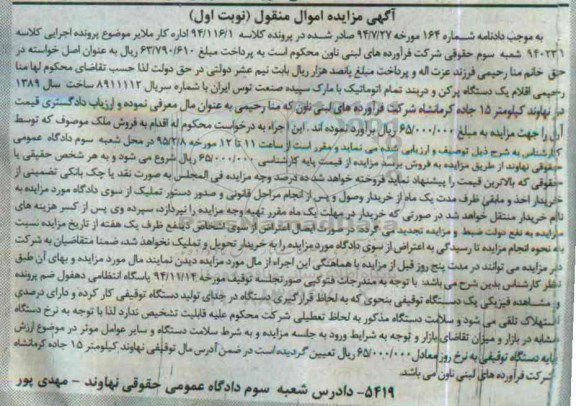 آگهی مزایده اموال منقول (نوبت اول)
به موجب دادنامه شماره ۱۶۴ مورخه ۹۴/۷/۲۷ صادر شده در پرونده کلاسه ۹۴/۱۱۶/۱ اداره کار ملایر موضوع پرونده اجرایی کلاسه
۹۴۰۲۳۱ شعبه سوم حقوقی شرکت فرآورده های لبنی ناون محکوم است به پرداخت مبلغ ۶۳/۷۹۰/۶۱۰ ریال به عنوان اصل خواسته در
حق خانم منا رحیمی فرزند عزت اله و پرداخت مبلغ پانصد هزار ریال بابت نیم عشر دولتی در حق دولت لذا حسب تقاضای محکوم لها منا
رحیمی اقلام یک دستگاه پرکن و دربند تمام اتوماتیک با مارک سپیده صنعت توس ایران با شماره سریال ۸۹۱۱۱۱۲ ساخت سال ۱۳۸۹
در نهاوند کیلومتر ۱۵ جاده کرمانشاه شرکت فرآورده های لبنی ناون که منا رحیمی به عنوان مال معرفی نموده و ارزیاب دادگستری قیمت
آن را جهت مزایده به مبلغ ۶۵/۰۰۰/۰۰۰ ریال برآورد نموده اند. این اجراء به درخواست محکوم له اقدام به فروش ملک موصوف که توسط
کارشناس به شرح ذیل توصیف و ارزیابی شده می نماید و مقرر است از ساعت ۱۱ تا ۱۲ مورخه ۹۵/۲/۸ در محل شعبه سوم دادگاه عمومی
حقوقی نهاوند از طریق مزایده به فروش برسد. مزایده از قیمت پایه کارشناسی ۶۵/۰۰۰/۰۰۰ ریال شروع می شود و به هر شخص حقیقی یا
حقوقی که بالاترین قیمت را پیشنهاد نماید فروخته خواهد شد ده درصد وجه مزایده فی المجلس به صورت نقد یا چک بانکی تضمینی از
خریدار اخذ و مابقی ظرف مدت یک ماه از خریدار وصول و پس از انجام مراحل قانونی و صدور دستور تملیک از سوی دادگاه مورد مزایده به
نام خریدار منتقل خواهد شد در صورتی که خریدار در مهلت یک ماه مقرر تهیه وجه مزایده را نپردازد، سپرده وی پس از کسر هزینه های
مزایده به نفع دولت ضبط و مزایده تجدید می گردد. در صورت اتصال اعتراض از سوی اشخاص ذینفع ظرف یک هفته از تاریخ مزایده نسبت
به نحوه انجام مزایده تا رسیدگی به اعتراض از سوی دادگاه مورد مزایده را به خریدار تحویل و تملیک نخواهد شد، ضمنا متقاضیان به شرکت
در مزایده می توانند در مدت پنج روز قبل از مزایده با هماهنگی این اجراء از مال مورد مزایده دیدن نمایند مال مورد مزایده و بهای آن طبق
نظر کارشناس بدین شرح می باشد: با توجه به مندرجات فتوکپی صورتجلسه توقیف مورخه ۹۴/۱۱/۱۴ پاسگاه انتظامی دهفول ضم پرونده
و مشاهده فیزیکی یک دستگاه توقیفی بنحوی که به لحاظ قرارگیری دستگاه در خدای تولید دستگاه توقیفی کار کرده و دارای درصدی
استهلاک تلقی می شود و سلامت دستگاه مذکور به لحاظ تعطیلی شرکت محکوم علیه قابلیت تشخیص ندارد لذا با توجه به نرخ دستگاه
مشابه در بازار و میزان تقاضای بازار و توجه به شرایط ورود به جلسه مزایده و به شرط سلامت دستگاه و سایر عوامل موثر در موضوع ارزش
پایه دستگاه توقیفی به نرخ روز معادل ۶۵/۰۰۰/۰۰۰ ریال تعیین گردیده است در ضمن آدرس مال توقیفی نهاوند کیلومتر ۱۵ جاده کرمانشاه
شرکت فرآورده های لبنی ناون می باشد.
۵۴۱۹- دادرس شعبه سوم دادگاه عمومی حقوقی نهاوند - مهدی پور